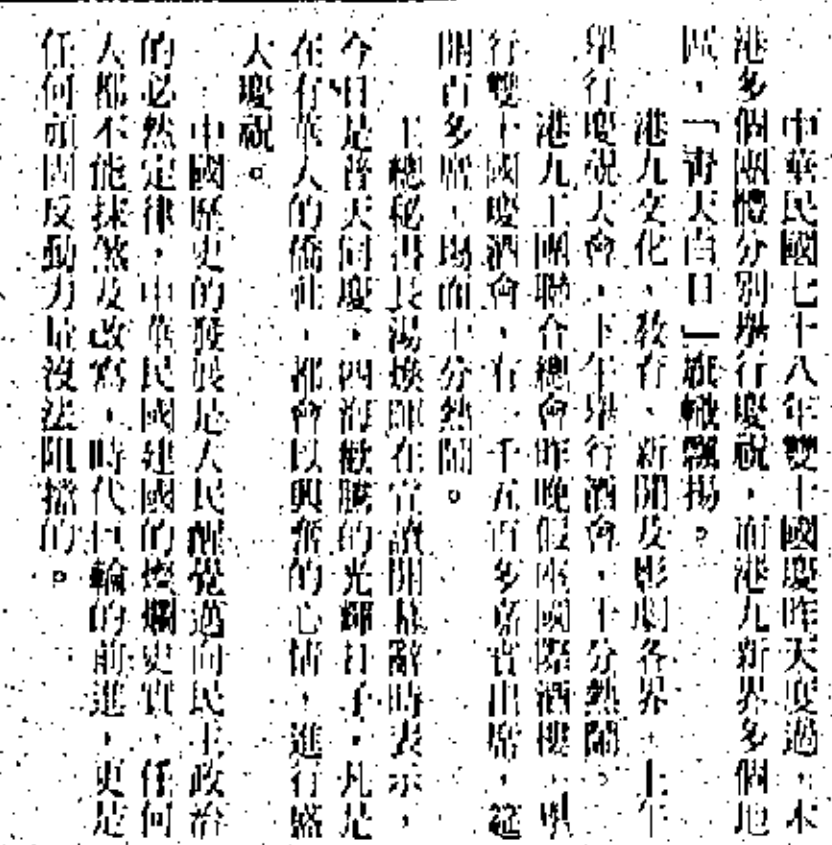 中華民國七十八年雙十國慶昨天度過，本
港多個團體分別舉行慶祝，而港九新界多個地
區，「靑天白日」旗幟飄揚。
港九文化、敎育、新聞及影劇各界，上午
舉行慶祝大會，下午舉行酒會，十分熱鬧。
港九工團聯合總會昨晚假座國際酒樓，舉
行雙十國慶酒會，有一千五百多嘉賓出席，筵
開百多席，塲面十分熱鬧。
總秘書長湯煥暉在宣讀開幕辭時表示，
今日是普天同慶、四海歡騰的光輝日子，凡是
在有華人的僑社，都會以興奮的心情，進行盛
大慶祝。
中國歷史的發展是人民醒覺邁向民主政治
的必然定律，中華民國建國的燦爛史實，任何
人都不能抹煞及改寫，時代巨輪的前進，更是
任何頑固反動力量沒法阻擋的。